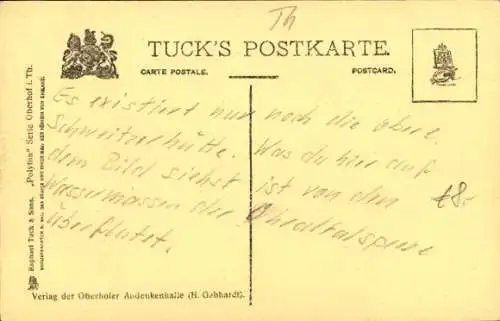 Th
TUCK'S POSTKARTE.
CARTE POSTALE.
POSTCARD.
Es existiert nur noch die obere
Schweizerhütte. Was du hier auf
dem Bild siehst ist von den
Wassermassen der Ohratalsperre
überflutet.
18.-
Raphael Tuck & Sons. „Polyton" Serie Oberhof i. Th.
Verlag der Oberhofer Andenkenhalle (H. Gebhardt).